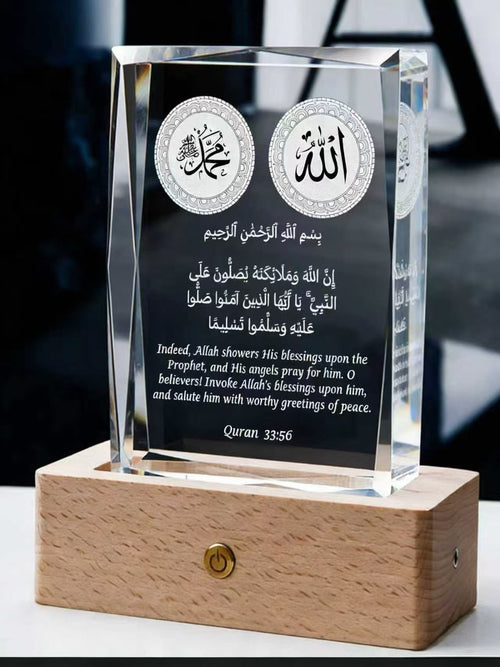 محمد ﷺ
الله
بِسْمِ ٱللَّهِ ٱلرَّحْمَٰنِ ٱلرَّحِيمِ
إِنَّ اللَّهَ وَمَلَائِكَتَهُ يُصَلُّونَ عَلَى
النَّبِيِّ ۚ يَا أَيُّهَا الَّذِينَ آمَنُوا صَلُّوا
عَلَيْهِ وَسَلِّمُوا تَسْلِيمًا
Indeed, Allah showers His blessings upon the
Prophet, and His angels pray for him. O
believers! Invoke Allah's blessings upon him,
and salute him with worthy greetings of peace.
Quran 33:56